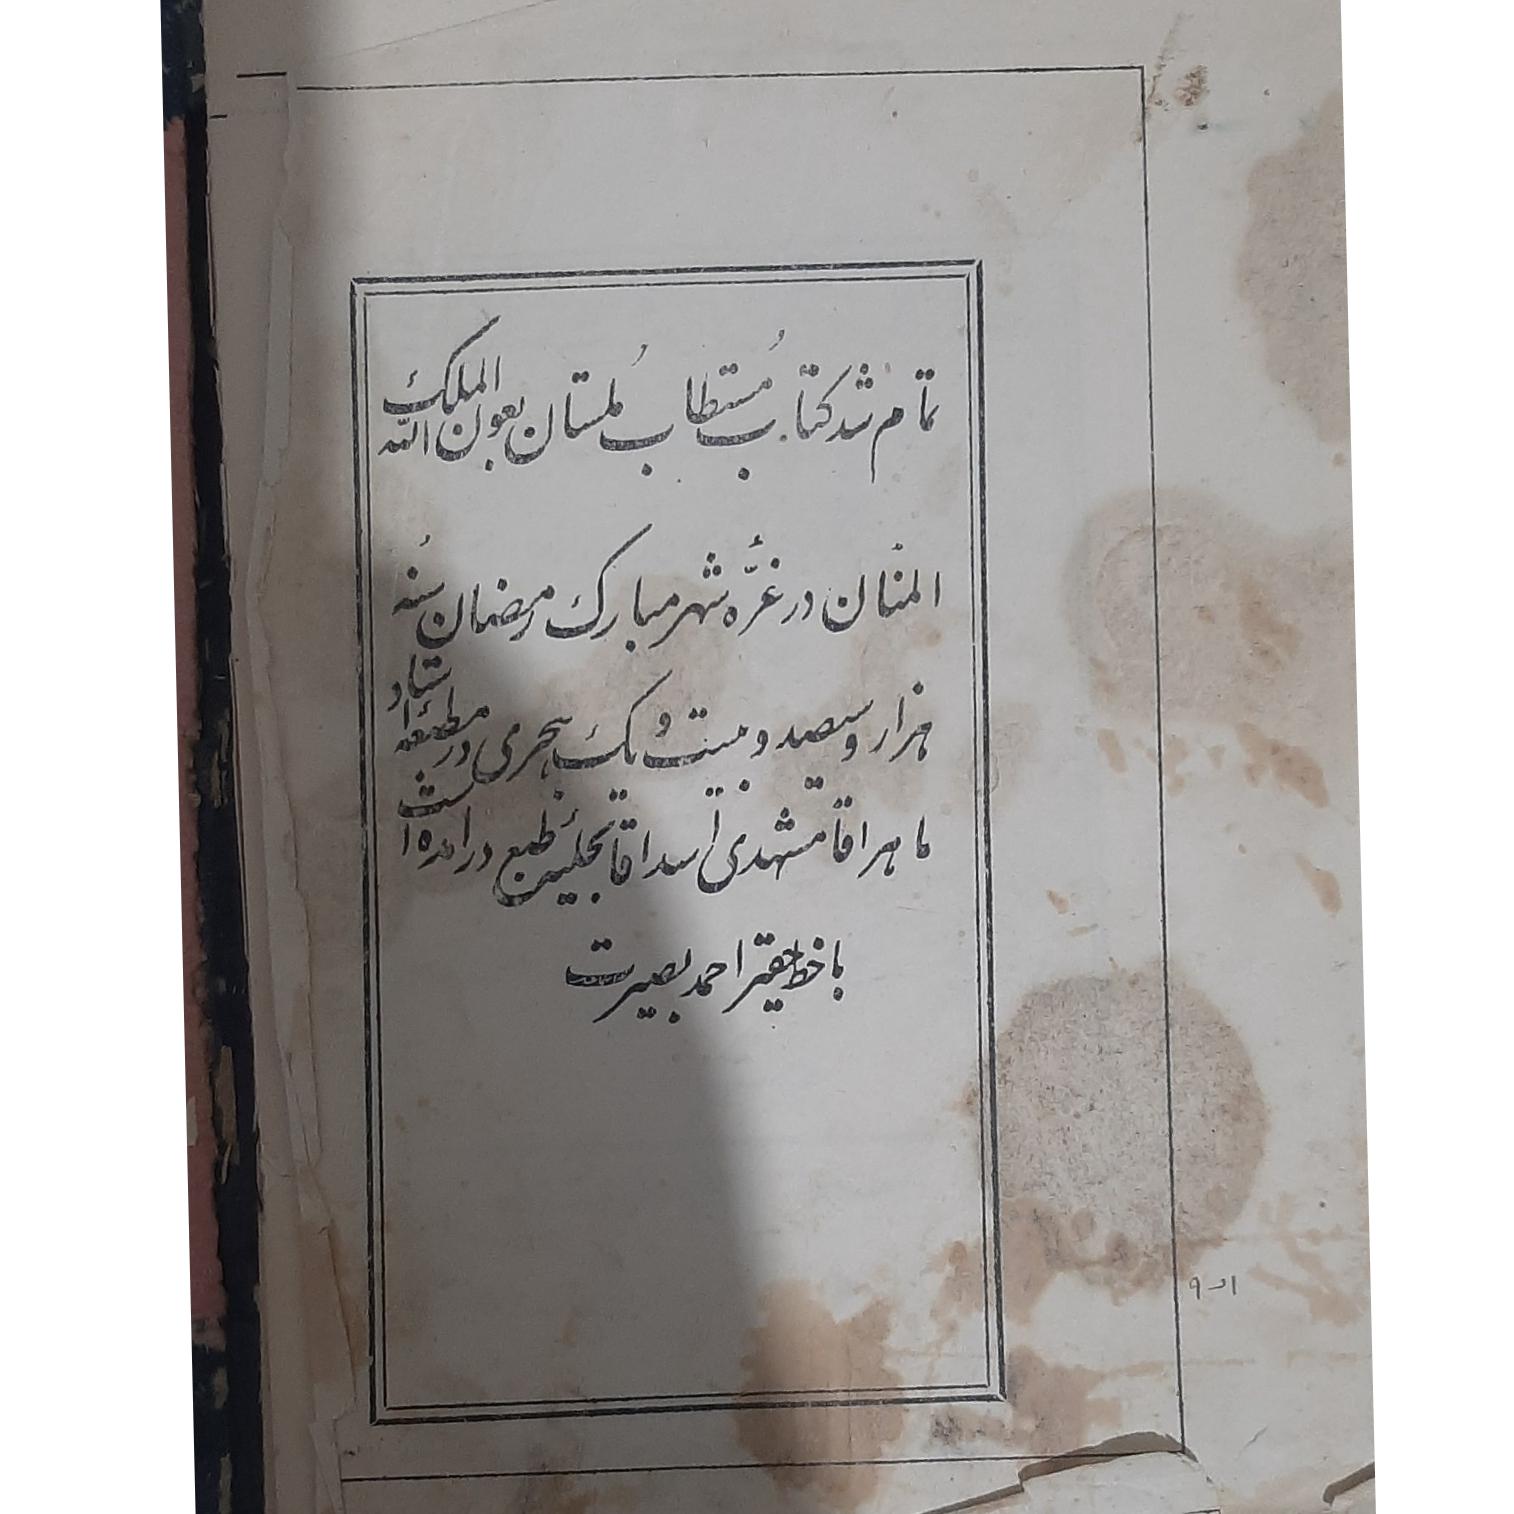 تمام شد کتاب مُستطاب گُلستان بعون الله الملک
المنّان در غرّهٔ شهر مبارک رمضان سنهٔ
هزار و سیصد و بیست و یک هجری در مطبعهٔ استاد
ماهر اقا مشهدی اسد اقا بحلیهٔ طبع درامده است
با خط حقیر احمد بصیرت